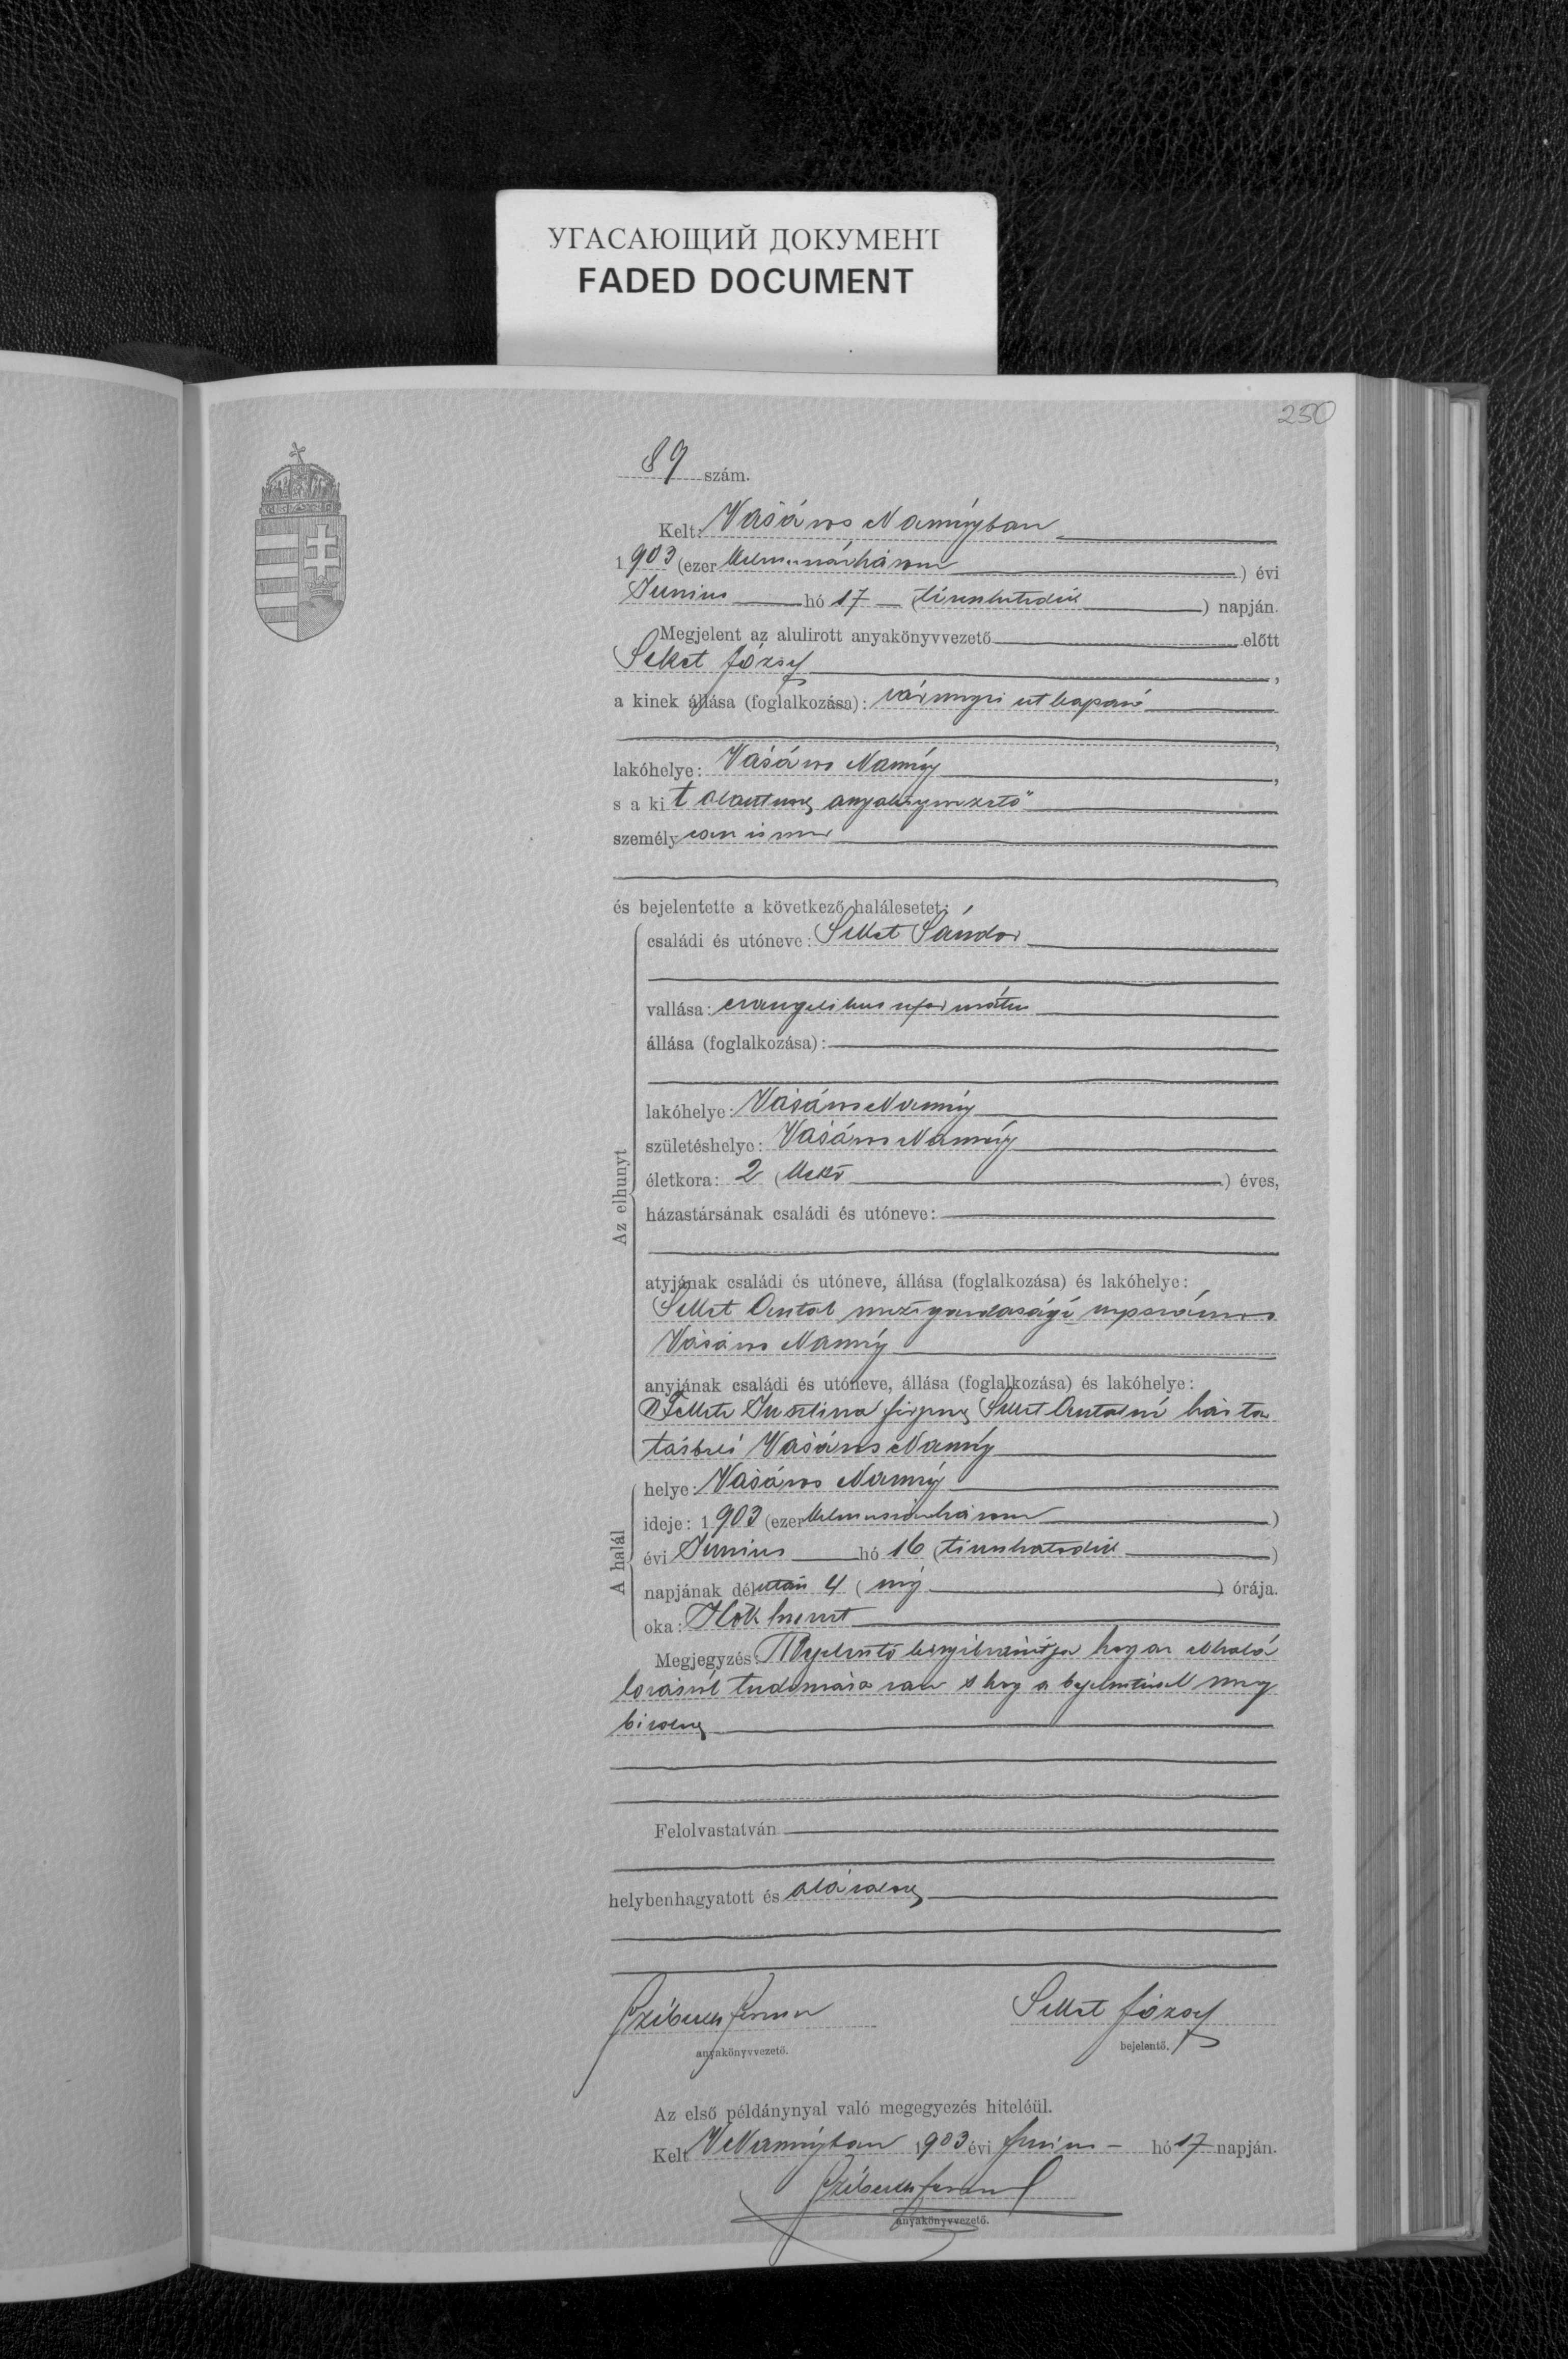 УГАСАЮЩИЙ ДОКУМЕНТ
FADED DOCUMENT
250
89 szám.
Kelt: Vásáros Naményban
1903 (ezer kilencszázhárom) évi
Junius hó 17 (tizenhetedik) napján.
Megjelent az alulirott anyakönyvvezető előtt
Seket József,
a kinek állása (foglalkozása): vármegyei utkaparó
lakóhelye: Vásáros Namény,
s a kit alantirott anyakönyvvezető
személyesen ismer
és bejelentette a következő halálesetet:
Az elhunyt
családi és utóneve: Seket Sándor
vallása: evangelikus református
állása (foglalkozása):
lakóhelye: Vásáros Namény
születéshelye: Vásáros Namény
életkora: 2 (kettő) éves,
házastársának családi és utóneve:
atyjának családi és utóneve, állása (foglalkozása) és lakóhelye:
Seket Antal mezőgazdasági napszámos
Vásáros Namény
anyjának családi és utóneve, állása (foglalkozása) és lakóhelye:
Jusztina Seket Antalnéházta
tásbeli Vásáros Namény
A halál
helye: Vásáros Namény
ideje: 1903 (ezer kilencszázhárom)
évi Junius hó 16 (tizenhatodik)
napjának délután 4 (négy) órája.
oka: Hökhurut
Megjegyzés: Bejelentő kinyilvánítja hogy az elhalá
lozásról tudomása van s hogy a bejelentéssel meg
bizatott
Felolvastatván
helybenhagyatott és aláiratott
Ferencz
anyakönyvvezető.
Seket József
bejelentő.
Az első példánynyal való megegyezés hiteléül.
Kelt VNaményban 1903 évi junius hó 17 napján.
Ferencz
anyakönyvvezető.